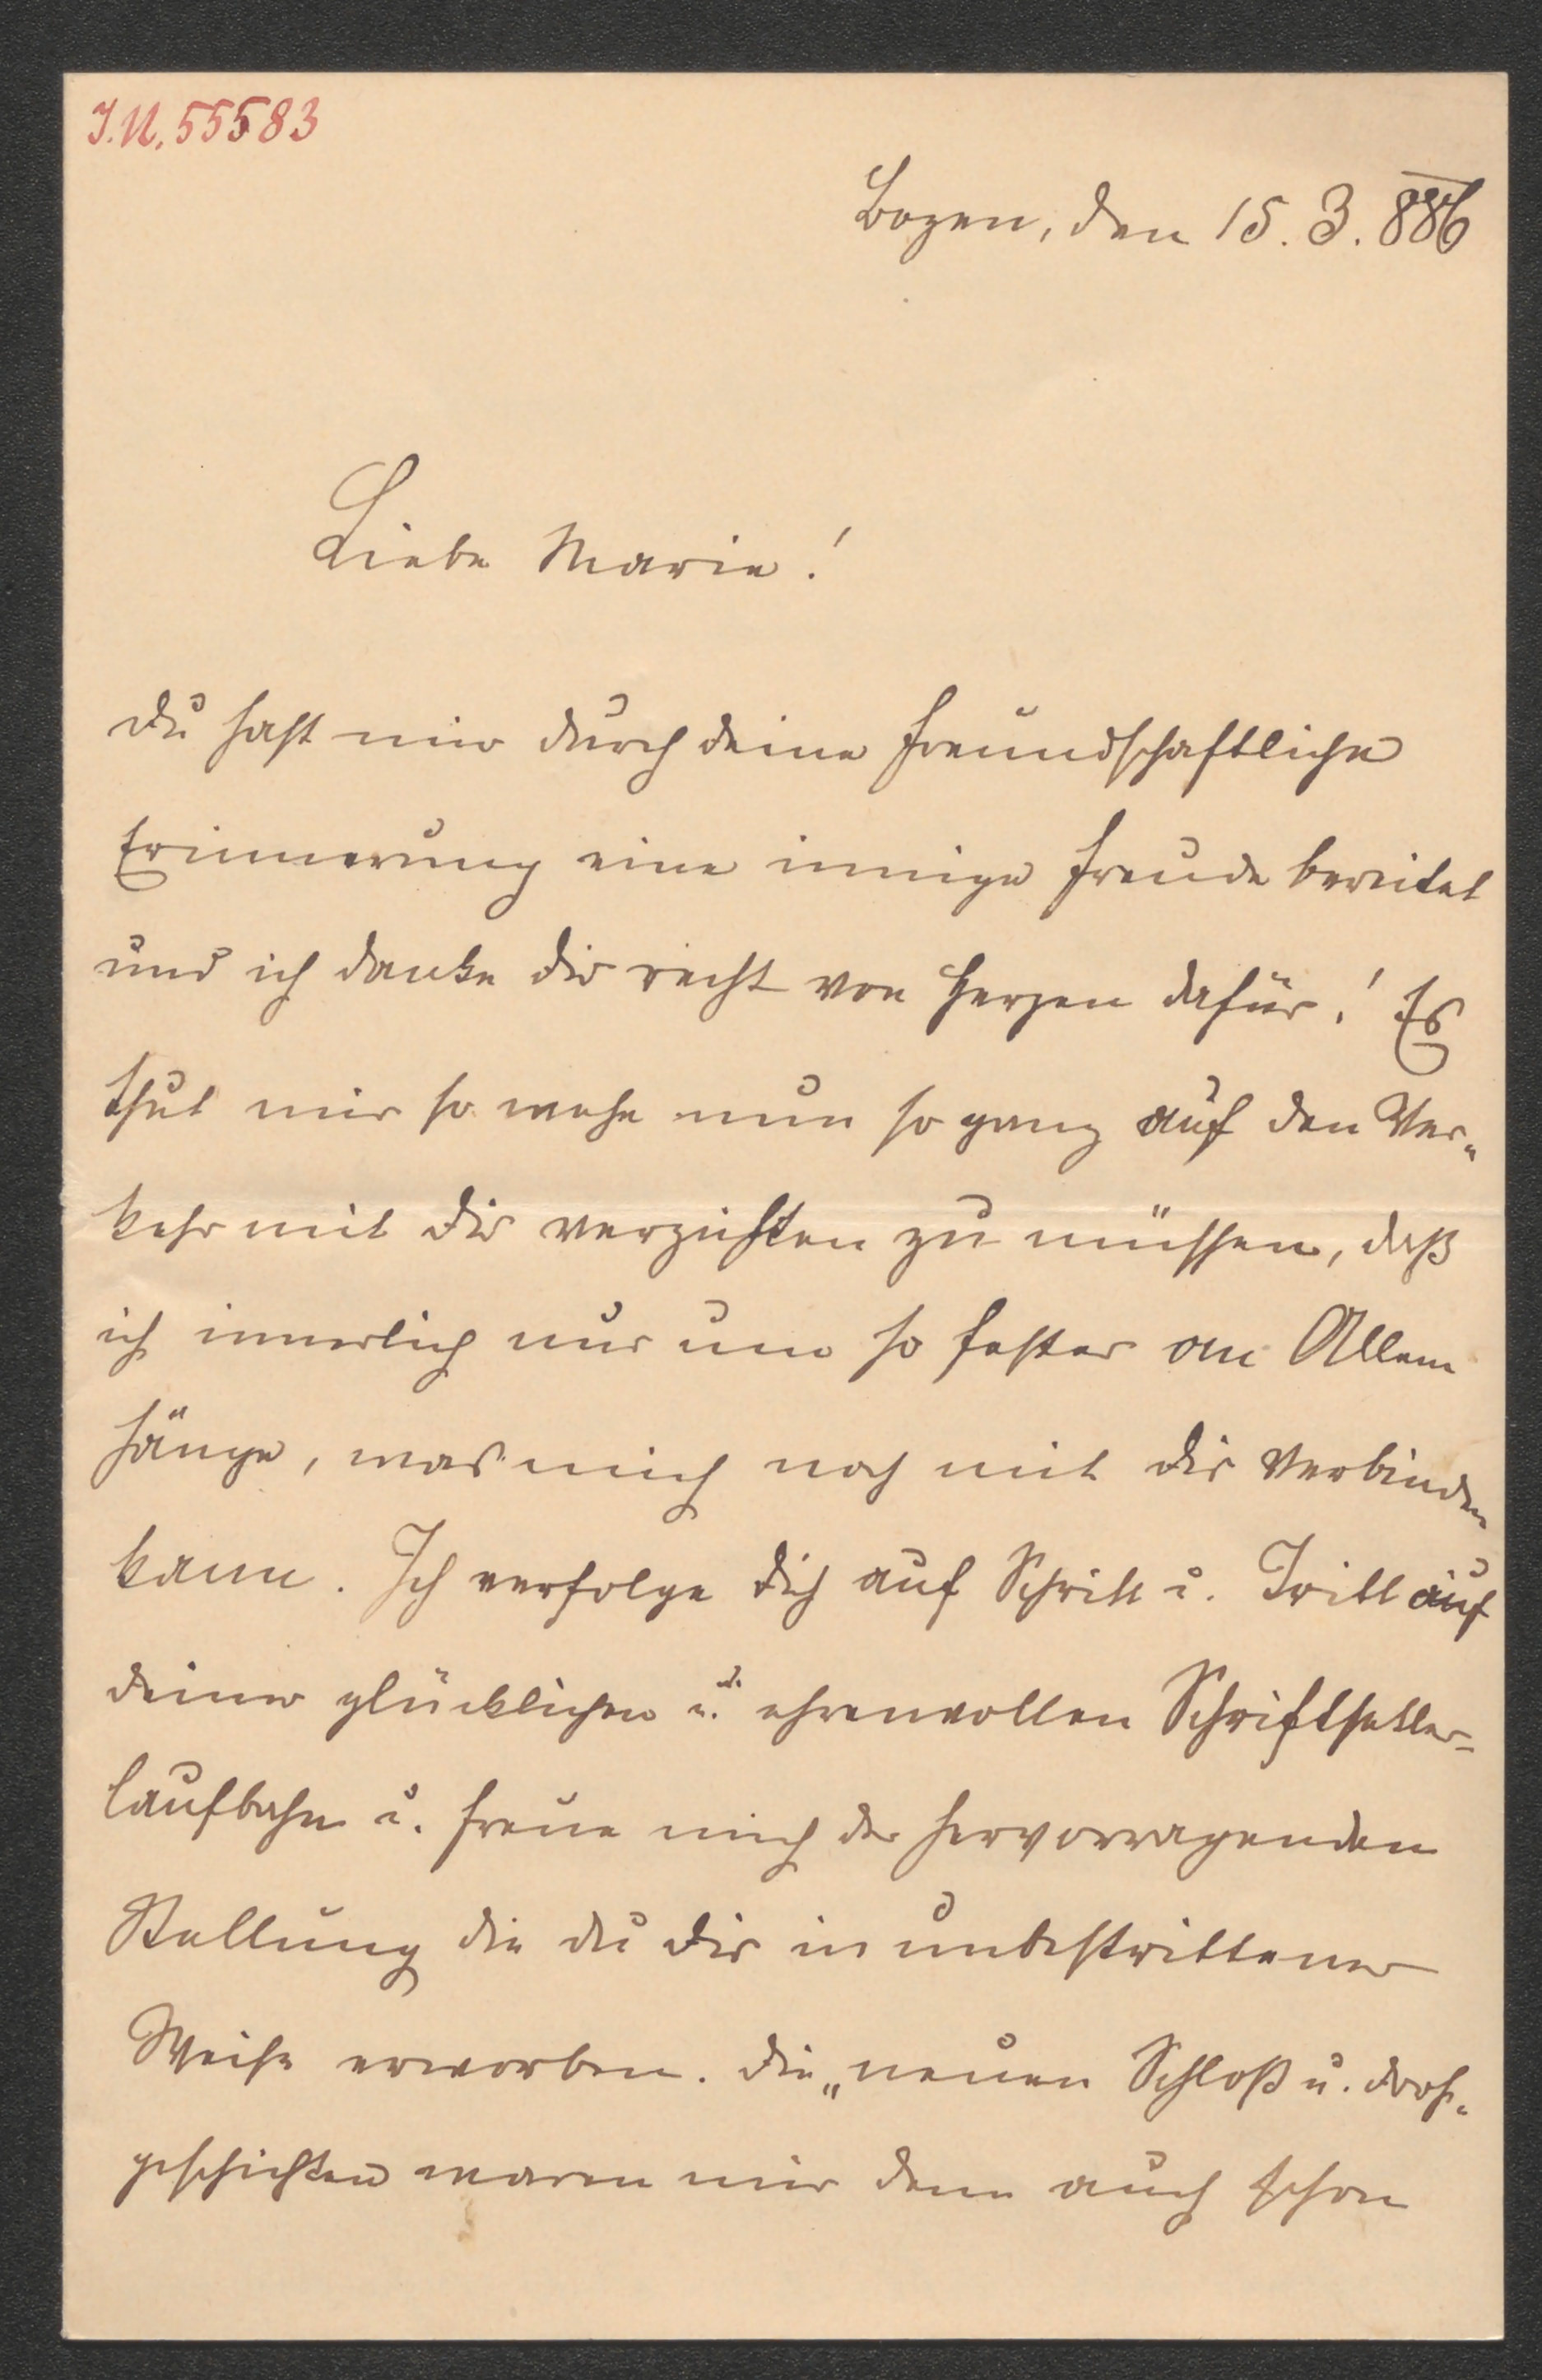 I.N. 55583
Bozen, den 15. 3. 886
Liebe Marie!
Du hast mir durch deine freundschaftliche
Erinnerung eine innige Freude bereitet
und ich danke dir recht von Herzen dafür! Es
thut mir so wehe nun so ganz auf den Ver-
kehr mit dir verzichten zu müssen, daß
ich innerlich nur um so fester an Allem
hänge, was mich noch mit dir verbinden
kann. Ich verfolge dich auf Schritt u. Tritt auf
deiner glücklichen u. ehrenvollen Schriftsteller-
laufbahn u. freue mich der hervorragenden
Stellung die du dir in unbestrittener
Weise erworben. Die „neuen Schloß u. Dorf-
geschichten waren mir denn auch schon